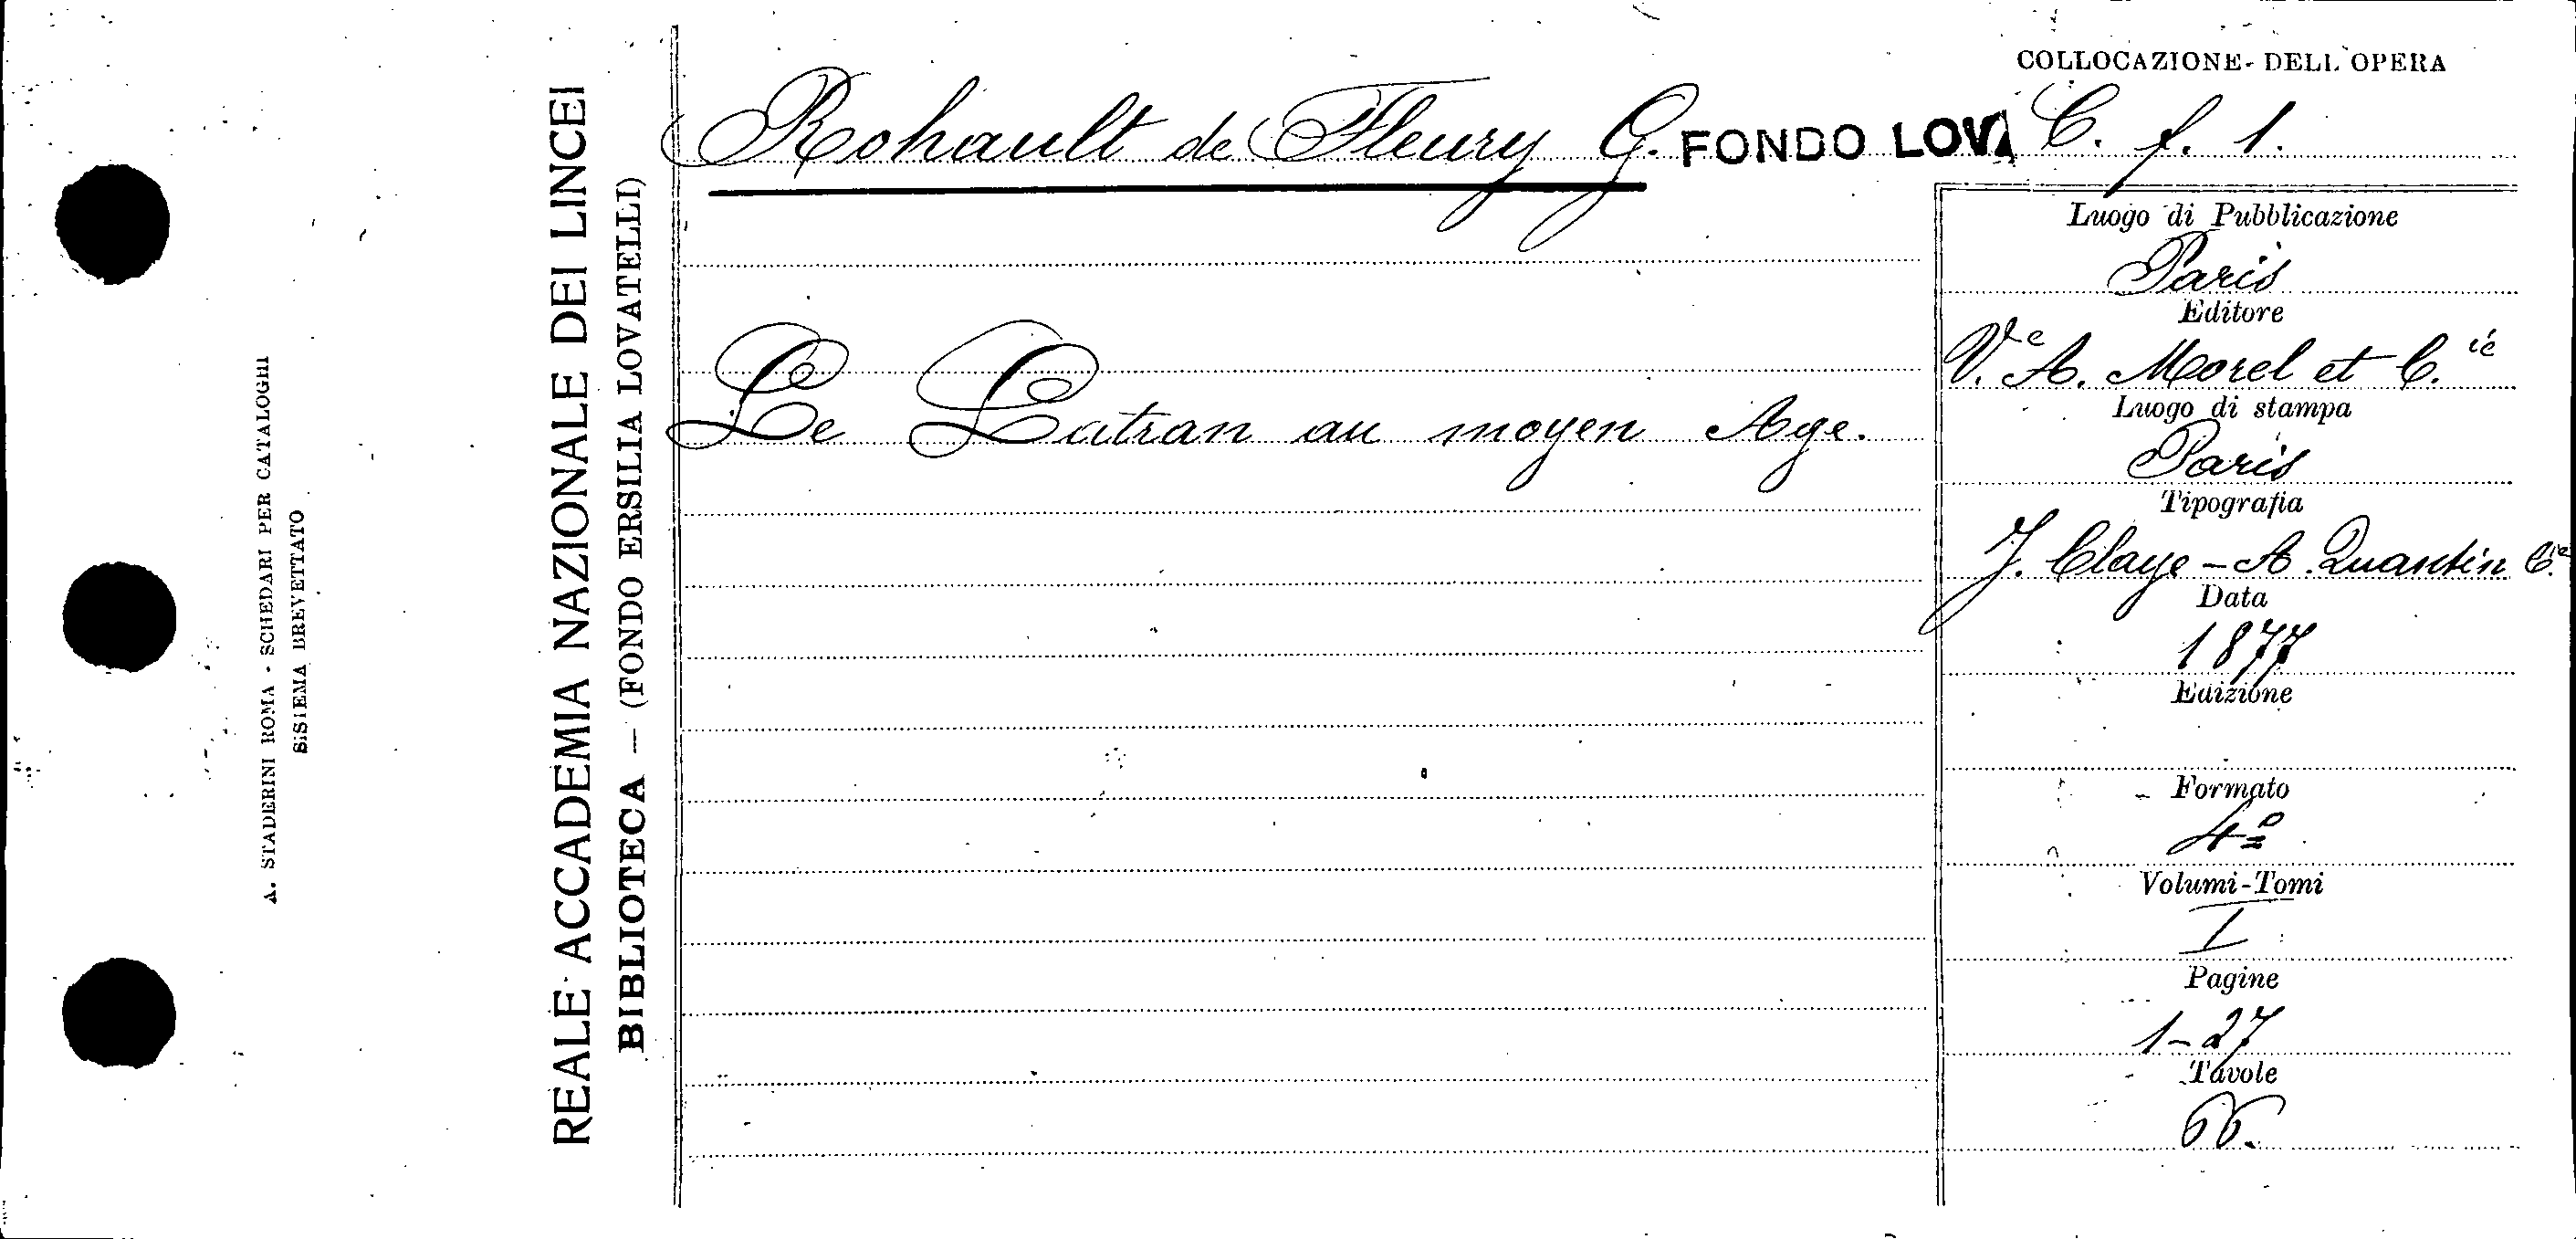 A. STADERINI ROMA - SCHEDARI PER CATALOGHI
SISIEMA BREVETTATO
REALE ACCADEMIA NAZIONALE DEI LINCEI
BIBLIOTECA — (FONDO ERSILIA LOVATELLI)
Rohault de Fleury G.
FONDO LOVA
Le Latran au moyen Age.
COLLOCAZIONE DELL'OPERA
C. f. 1.
Luogo di Pubblicazione
Paris
Editore
Ve A. Morel et C.ie
Luogo di stampa
Paris
Tipografia
J. Claye - A. Quantin C.ie
Data
1877
Edizione
Formato
4º
Volumi-Tomi
I
Pagine
1-27
Tavole
66.